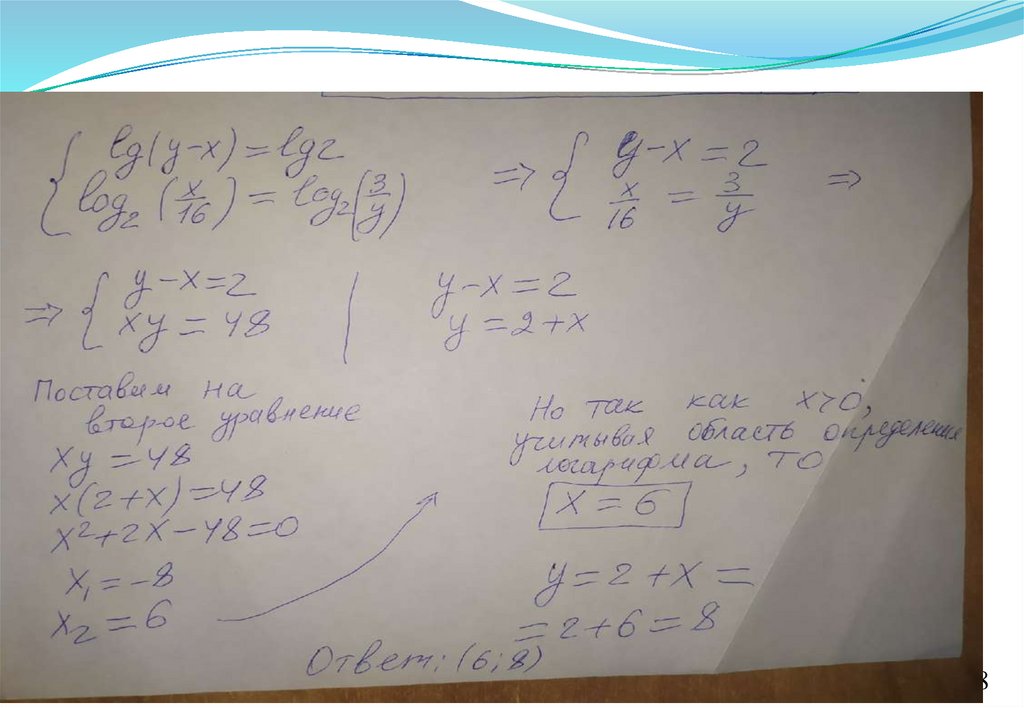 { lg(y-x) = lg2
log₂(x/16) = log₂(3/y)
=> { y-x = 2
x/16 = 3/y =>
=> { y-x=2
xy = 48
y-x = 2
y = 2+x
Поставим на
второе уравнение
xy = 48
x(2+x) = 48
x²+2x-48=0
x₁ = -8
x₂ = 6
Но так как x>0,
учитывая область определения
логарифма, то
x = 6
y = 2 + x =
= 2+6 = 8
Ответ: (6;8)
8